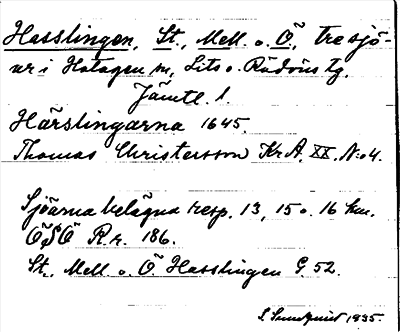 Hasslingen, St., Mell. o. Ö., tre sjö-
ar i Hotagen sn, Lits o. Rödöns tg.
Jämtl. l.
Härslingarna 1645.
Thomas Christersson KrA. XX. N:o 4.
Sjöarna belägna resp. 13, 15 o. 16 km.
ÖSÖ R.r. 186.
St., Mell. o. Ö Hasslingen G. 52.
S. Sundquist 1935.